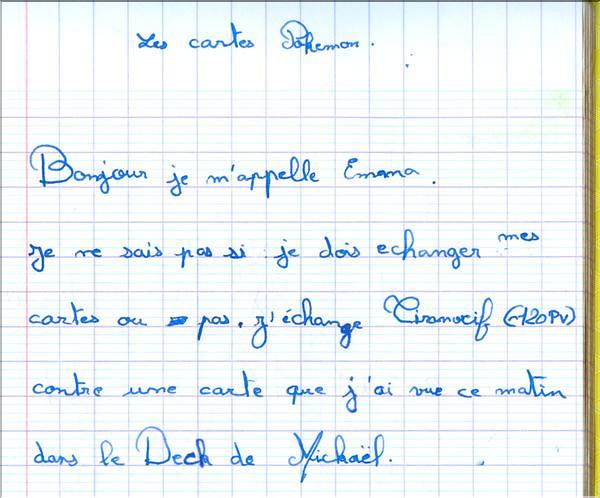 Les cartes Pokemon.
Bonjour je m'appelle Emma.
Je ne sais pas si je dois echanger mes
cartes ou pas. J'échange Tiranocif (120PV)
contre une carte que j'ai vue ce matin
dans le Deck de Mickaël.